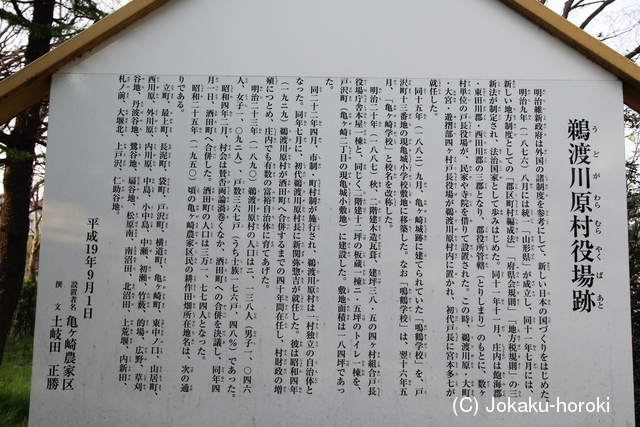 鵜渡川原村役場跡
うどがわらむらやくばあと
明治維新政府は外国の諸制度を参考にして、新しい日本の国づくりをはじめた。
明治九年（一八七六）八月には統一「山形県」が成立し、同十一年七月には、
新しい地方制度としての「郡区町村編成法」「府県会規則」「地方税規則」の三
新法が制定され、法治国家として歩みはじめた。同十一年十一月、庄内は飽海郡
・東田川郡・西田川郡の三郡となり、郡役所管轄（とりしまり）のもとに、数ヶ
村単位の戸長役場が、民家や寺院を借りて設置された。この時、鵜渡川原、大町
・大宮・遊摺部四ヶ村戸長役場が鵜渡川原村内に置かれ、初代戸長に宮本多七が
就任した。
同十五年（一八八二）九月、亀ヶ崎城跡に建てられていた「鳴鶴学校」を、戸
沢町十三番地の現亀城小学校敷地に移築した。なお「鳴鶴学校」は、翌十六年五
月、「亀ヶ崎学校」と校名を改称した。
明治二十年（一八八七）秋、二階建木造瓦葺、建坪三八・五の四ヶ村組合戸長
役場庁舎本屋一棟と、同じく二階建十二坪の板蔵一棟と二・五坪のトイレ一棟を、
戸沢町（亀ヶ崎二丁目の現亀城小敷地）に建設した。敷地面積は一八四坪であっ
た。
同二十二年四月、市制、町村制が施行され、鵜渡川原村は一村独立の自治体と
なった。同年七月に、初代鵜渡川原村長に新関弥惣吉が就任した。彼は昭和四年
（一九二九）鵜渡川原村が酒田町へ合併するまでの四十年間在任し、村財政の増
殖につとめ、庄内でも有数の富裕自治体に育てあげた。
明治二十三年（一八九〇）鵜渡川原村の人口は二、一三八人（男子一、〇四六
人、女子一、〇九二人）、戸数三六七戸（うち士族一七六戸・四八％）であった。
昭和四年二月、村会は賛否両論渦巻くなか、酒田町への合併を決議し、同年四
月一日、酒田町へ合併した。酒田町の人口は三万一、七七四人となった。
昭和二十五年（一九五〇）頃の亀ヶ崎農家区民の耕作田畑所在地名は、次の通
りである。
立町、最上町、長泥町、袋町、戸沢町、横道町、亀ヶ崎町、東中ノ口、山居町、
西川原、外川原、内川原、中島、小中島、中瀬、初瀬、竹藪、的場、広野、草刈
谷地、丹波谷地、鶯谷地、扇谷地、松原南、南沼田、北沼田、上荒堰、内新田、
札ノ前、大堰北、上戸沢、仁助谷地。
平成19年9月1日
設置者名 亀ヶ崎農家区
撰文 土岐田 正勝
(C) Jokaku-horoki